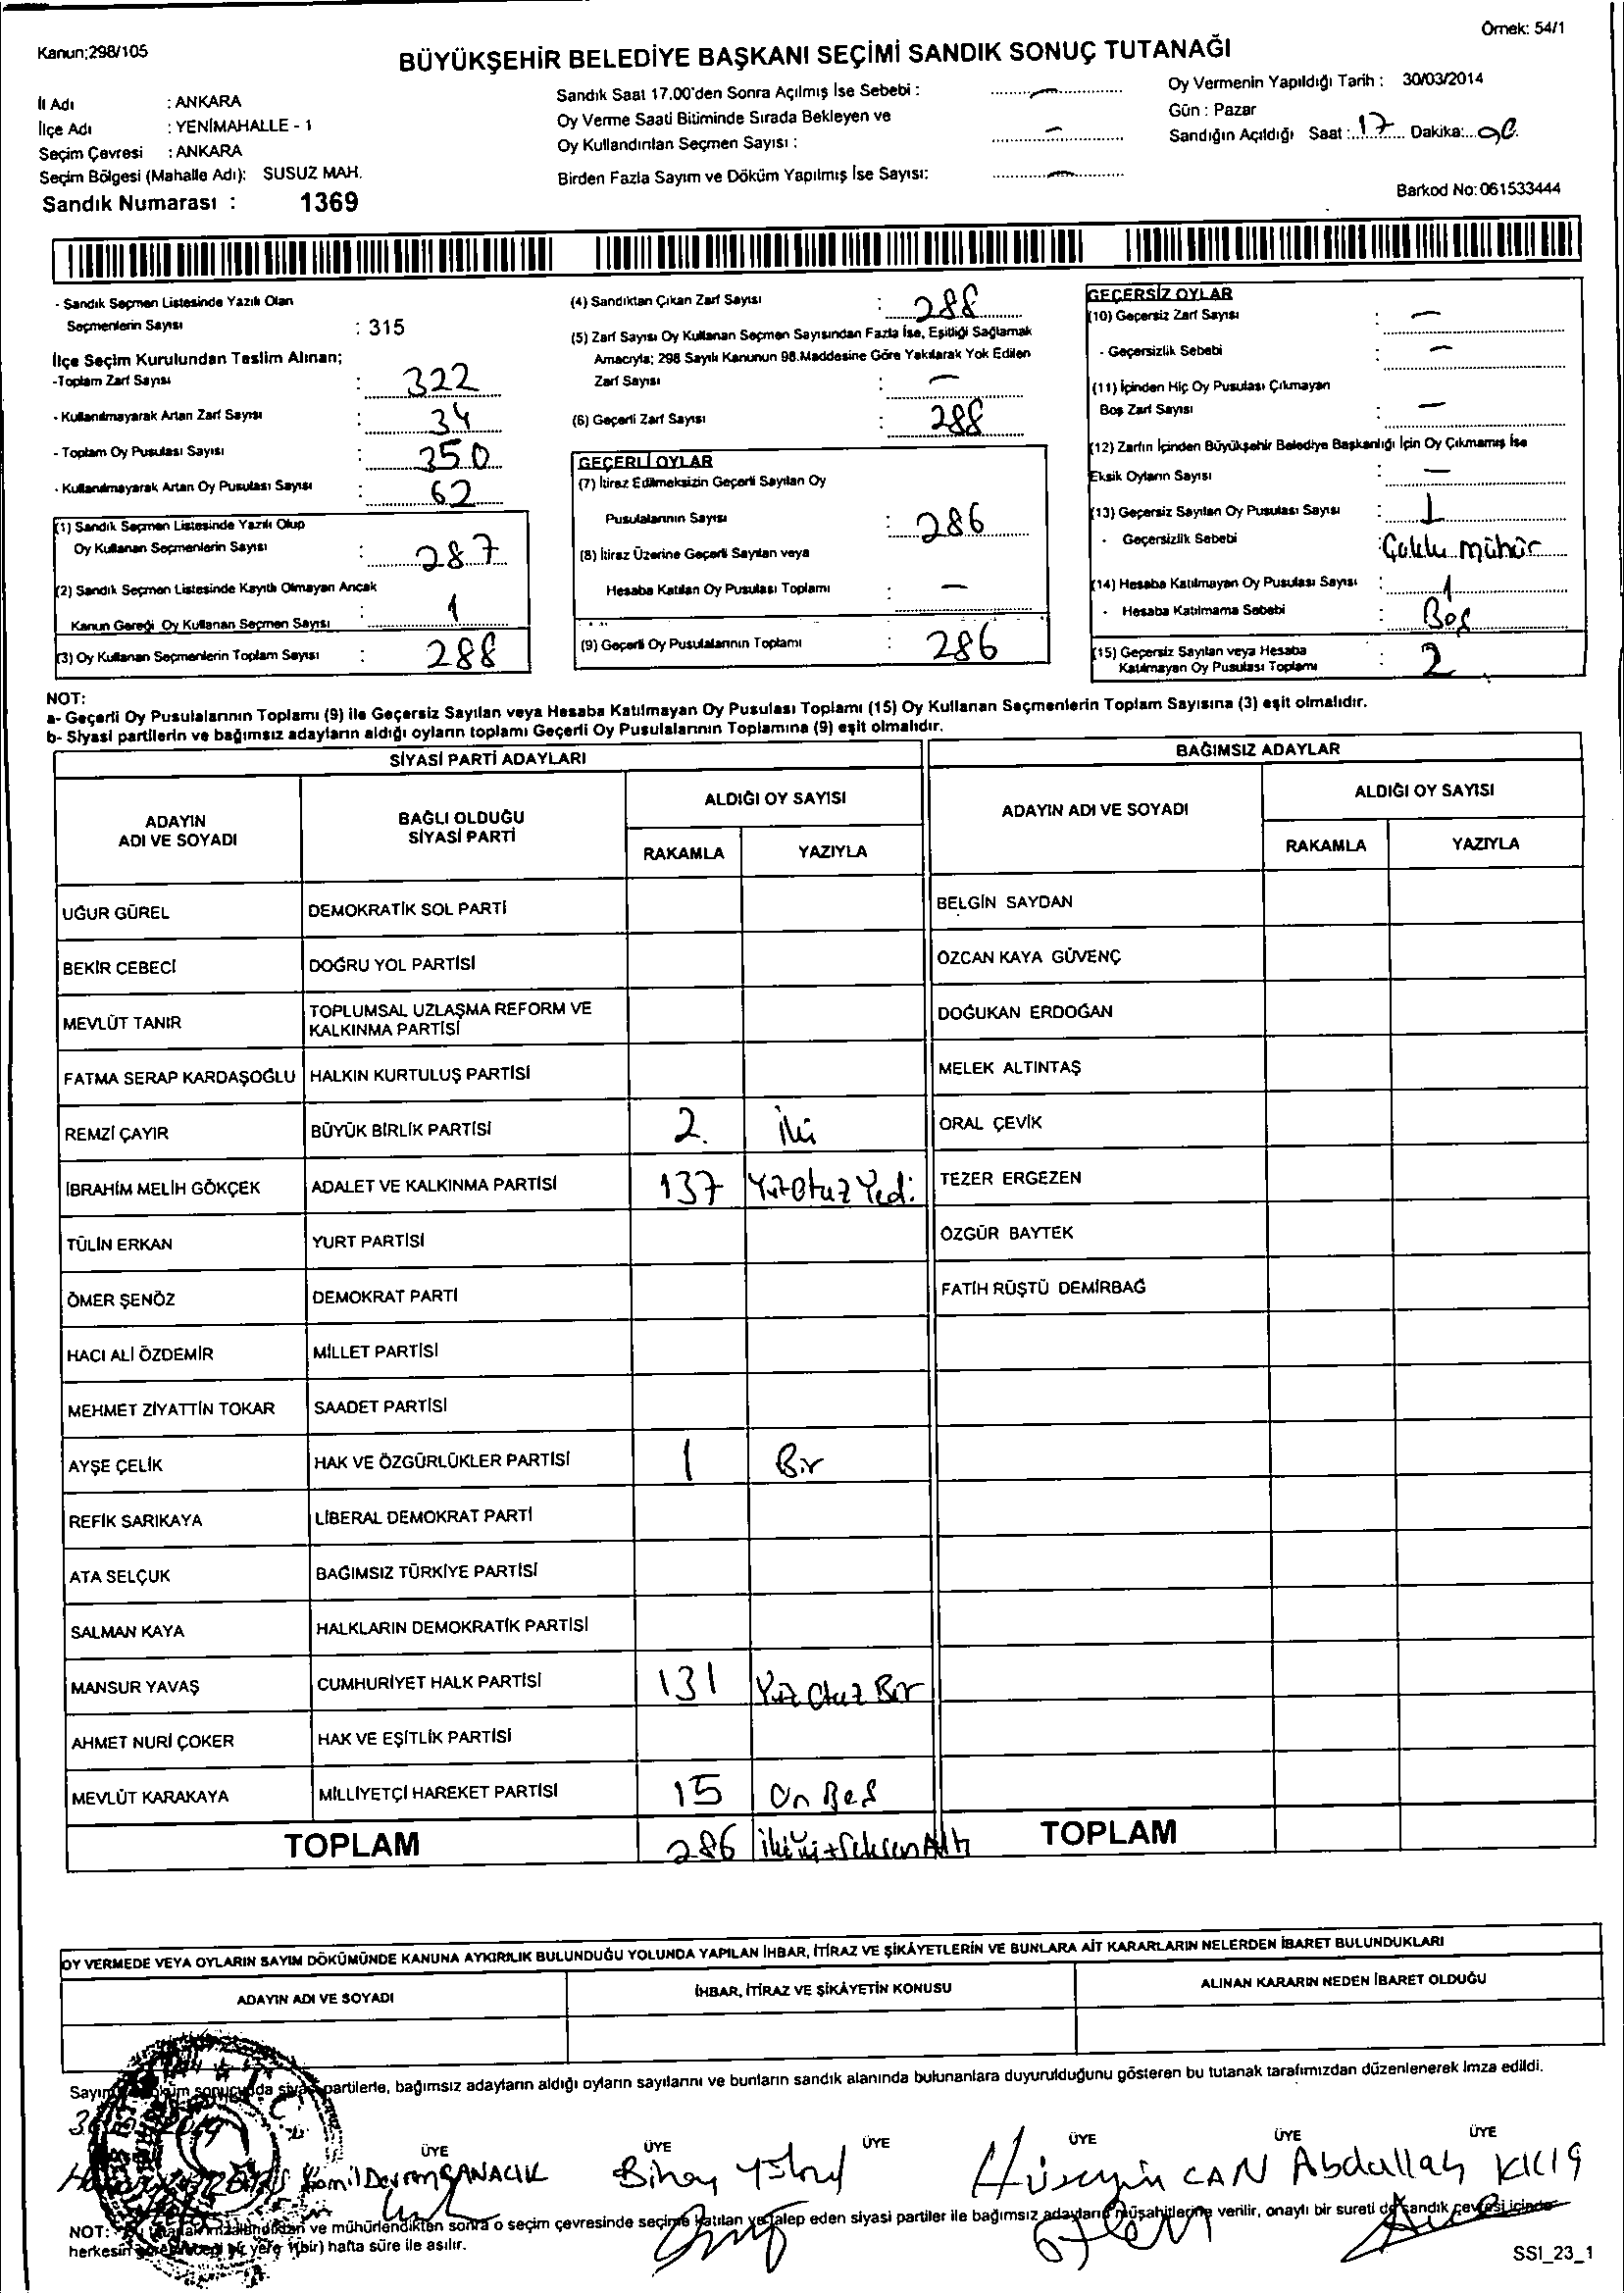 Kanun;298/105
Örnek: 54/1
BÜYÜKŞEHİR BELEDİYE BAŞKANI SEÇİMİ SANDIK SONUÇ TUTANAĞI
İl Adı : ANKARA
İlçe Adı : YENİMAHALLE - 1
Seçim Çevresi : ANKARA
Seçim Bölgesi (Mahalle Adı): SUSUZ MAH.
Sandık Numarası : 1369
Sandık Saat 17.00'den Sonra Açılmış İse Sebebi : —
Oy Verme Saati Bitiminde Sırada Bekleyen ve
Oy Kullandırılan Seçmen Sayısı : —
Birden Fazla Sayım ve Döküm Yapılmış İse Sayısı: —
Oy Vermenin Yapıldığı Tarih : 30/03/2014
Gün : Pazar
Sandığın Açıldığı Saat : 17 Dakika:
Barkod No: 061533444
- Sandık Seçmen Listesinde Yazılı Olan
Seçmenlerin Sayısı : 315
İlçe Seçim Kurulundan Teslim Alınan;
-Toplam Zarf Sayısı : 322
- Kullanılmayarak Artan Zarf Sayısı : 34
- Toplam Oy Pusulası Sayısı : 350
- Kullanılmayarak Artan Oy Pusulası Sayısı : 62
(1) Sandık Seçmen Listesinde Yazılı Olup
Oy Kullanan Seçmenlerin Sayısı : 287
(2) Sandık Seçmen Listesinde Kayıtlı Olmayan Ancak
Kanun Gereği Oy Kullanan Seçmen Sayısı : 1
(3) Oy Kullanan Seçmenlerin Toplam Sayısı : 288
(4) Sandıktan Çıkan Zarf Sayısı : 288
(5) Zarf Sayısı Oy Kullanan Seçmen Sayısından Fazla İse, Eşitliği Sağlamak
Amacıyla; 298 Sayılı Kanunun 98.Maddesine Göre Yakılarak Yok Edilen
Zarf Sayısı : —
(6) Geçerli Zarf Sayısı : 288
GEÇERLİ OYLAR
(7) İtiraz Edilmeksizin Geçerli Sayılan Oy
Pusulalarının Sayısı : 286
(8) İtiraz Üzerine Geçerli Sayılan veya
Hesaba Katılan Oy Pusulası Toplamı : —
(9) Geçerli Oy Pusulalarının Toplamı : 286
GEÇERSİZ OYLAR
(10) Geçersiz Zarf Sayısı : —
- Geçersizlik Sebebi : —
(11) İçinden Hiç Oy Pusulası Çıkmayan
Boş Zarf Sayısı : —
(12) Zarfın İçinden Büyükşehir Belediye Başkanlığı İçin Oy Çıkmamış İse
Eksik Oyların Sayısı : —
(13) Geçersiz Sayılan Oy Pusulası Sayısı : 1
- Geçersizlik Sebebi : Çoklu mühür
(14) Hesaba Katılmayan Oy Pusulası Sayısı : 1
- Hesaba Katılmama Sebebi : Boş
(15) Geçersiz Sayılan veya Hesaba
Katılmayan Oy Pusulası Toplamı : 2
NOT:
a- Geçerli Oy Pusulalarının Toplamı (9) ile Geçersiz Sayılan veya Hesaba Katılmayan Oy Pusulası Toplamı (15) Oy Kullanan Seçmenlerin Toplam Sayısına (3) eşit olmalıdır.
b- Siyasi partilerin ve bağımsız adayların aldığı oyların toplamı Geçerli Oy Pusulalarının Toplamına (9) eşit olmalıdır.
SİYASİ PARTİ ADAYLARI
ADAYIN
ADI VE SOYADI
BAĞLI OLDUĞU
SİYASİ PARTİ
ALDIĞI OY SAYISI
RAKAMLA YAZIYLA
UĞUR GÜREL DEMOKRATİK SOL PARTİ
BEKİR CEBECİ DOĞRU YOL PARTİSİ
MEVLÜT TANIR TOPLUMSAL UZLAŞMA REFORM VE
KALKINMA PARTİSİ
FATMA SERAP KARDAŞOĞLU HALKIN KURTULUŞ PARTİSİ
REMZİ ÇAYIR BÜYÜK BİRLİK PARTİSİ 2. İki
İBRAHİM MELİH GÖKÇEK ADALET VE KALKINMA PARTİSİ 137 YüzOtuzYedi
TÜLİN ERKAN YURT PARTİSİ
ÖMER ŞENÖZ DEMOKRAT PARTİ
HACI ALİ ÖZDEMİR MİLLET PARTİSİ
MEHMET ZİYATTİN TOKAR SAADET PARTİSİ
AYŞE ÇELİK HAK VE ÖZGÜRLÜKLER PARTİSİ 1 Bir
REFİK SARIKAYA LİBERAL DEMOKRAT PARTİ
ATA SELÇUK BAĞIMSIZ TÜRKİYE PARTİSİ
SALMAN KAYA HALKLARIN DEMOKRATİK PARTİSİ
MANSUR YAVAŞ CUMHURİYET HALK PARTİSİ 131 Yüz Otuz Bir
AHMET NURİ ÇOKER HAK VE EŞİTLİK PARTİSİ
MEVLÜT KARAKAYA MİLLİYETÇİ HAREKET PARTİSİ 15 On Beş
TOPLAM 286 İkiYüzSeksenAltı
BAĞIMSIZ ADAYLAR
ADAYIN ADI VE SOYADI
ALDIĞI OY SAYISI
RAKAMLA YAZIYLA
BELGİN SAYDAN
ÖZCAN KAYA GÜVENÇ
DOĞUKAN ERDOĞAN
MELEK ALTINTAŞ
ORAL ÇEVİK
TEZER ERGEZEN
ÖZGÜR BAYTEK
FATİH RÜŞTÜ DEMİRBAĞ
TOPLAM
OY VERMEDE VEYA OYLARIN SAYIM DÖKÜMÜNDE KANUNA AYKIRILIK BULUNDUĞU YOLUNDA YAPILAN İHBAR, İTİRAZ VE ŞİKÂYETLERİN VE BUNLARA AİT KARARLARIN NELERDEN İBARET BULUNDUKLARI
ADAYIN ADI VE SOYADI
İHBAR, İTİRAZ VE ŞİKÂYETİN KONUSU
ALINAN KARARIN NEDEN İBARET OLDUĞU
Sayım partilerle, bağımsız adayların aldığı oyların sayılarını ve bunların sandık alanında bulunanlara duyurulduğunu gösteren bu tutanak tarafımızdan düzenlenerek imza edildi.
ÜYE ÜYE ÜYE ÜYE ÜYE ÜYE
Hüseyin CAN Abdullah KILIÇ
NOT: ve mühürlendikten sonra o seçim çevresinde seçime katılan ve talep eden siyasi partiler ile bağımsız adayların müşahitlerine verilir, onaylı bir sureti de sandık çevresi içinde
herkesin yere (bir) hafta süre ile asılır.
SSI_23_1